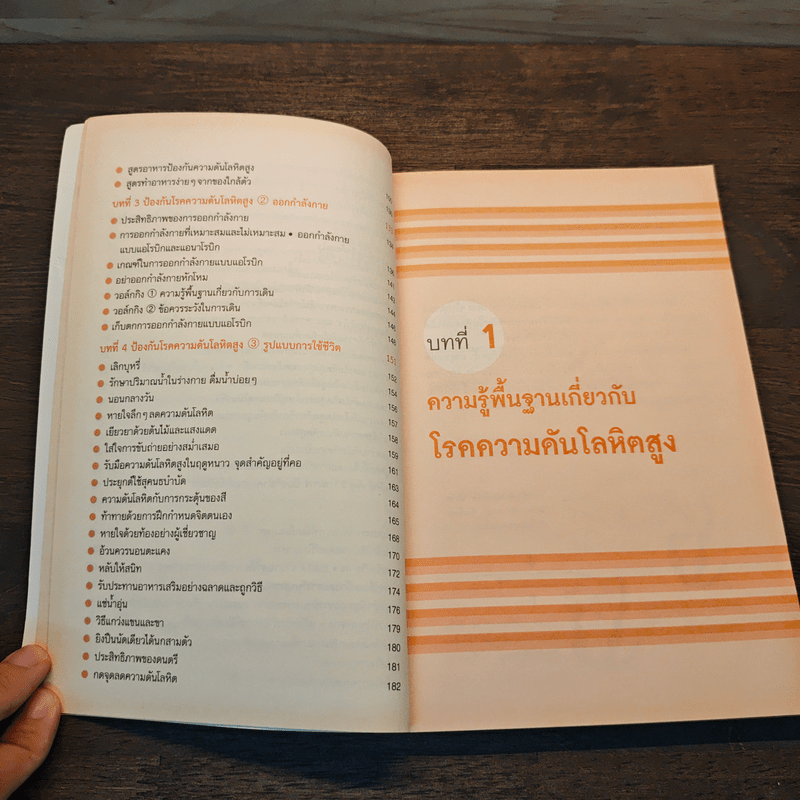 สูตรอาหารป้องกันความดันโลหิตสูง
สูตรทำอาหารง่ายๆ จากของใกล้ตัว
บทที่ 3 ป้องกันโรคความดันโลหิตสูง ② ออกกำลังกาย
ประสิทธิภาพของการออกกำลังกาย
การออกกำลังกายที่เหมาะสมและไม่เหมาะสม • ออกกำลังกาย
แบบแอโรบิกและแอนาโรบิก
เกณฑ์ในการออกกำลังกายแบบแอโรบิก
อย่าออกกำลังกายหักโหม 141
วอล์กกิง ① ความรู้พื้นฐานเกี่ยวกับการเดิน 143
วอล์กกิง ② ข้อควรระวังในการเดิน 144
เก็บตกการออกกำลังกายแบบแอโรบิก
บทที่ 4 ป้องกันโรคความดันโลหิตสูง ③ รูปแบบการใช้ชีวิต 151
เลิกบุหรี่ 152
รักษาปริมาณน้ำในร่างกาย ดื่มน้ำบ่อยๆ 154
นอนกลางวัน 156
หายใจลึกๆ ลดความดันโลหิต 157
เยียวยาด้วยต้นไม้และแสงแดด 158
ใส่ใจการขับถ่ายอย่างสม่ำเสมอ 159
รับมือความดันโลหิตสูงในฤดูหนาว จุดสำคัญอยู่ที่คอ 161
ประยุกต์ใช้สุคนธบำบัด 163
ความดันโลหิตกับการกระตุ้นของสี 164
ท้าทายด้วยการฝึกกำหนดจิตตนเอง 165
หายใจด้วยท้องอย่างผู้เชี่ยวชาญ 168
อ้วนควรนอนตะแคง 170
หลับให้สนิท 172
รับประทานอาหารเสริมอย่างฉลาดและถูกวิธี 174
แช่น้ำอุ่น 176
วิธีแกว่งแขนและขา 179
ยิงปืนนัดเดียวได้นกสามตัว 180
ประสิทธิภาพของดนตรี 181
กดจุดลดความดันโลหิต 182
บทที่ 1
ความรู้พื้นฐานเกี่ยวกับ
โรคความดันโลหิตสูง